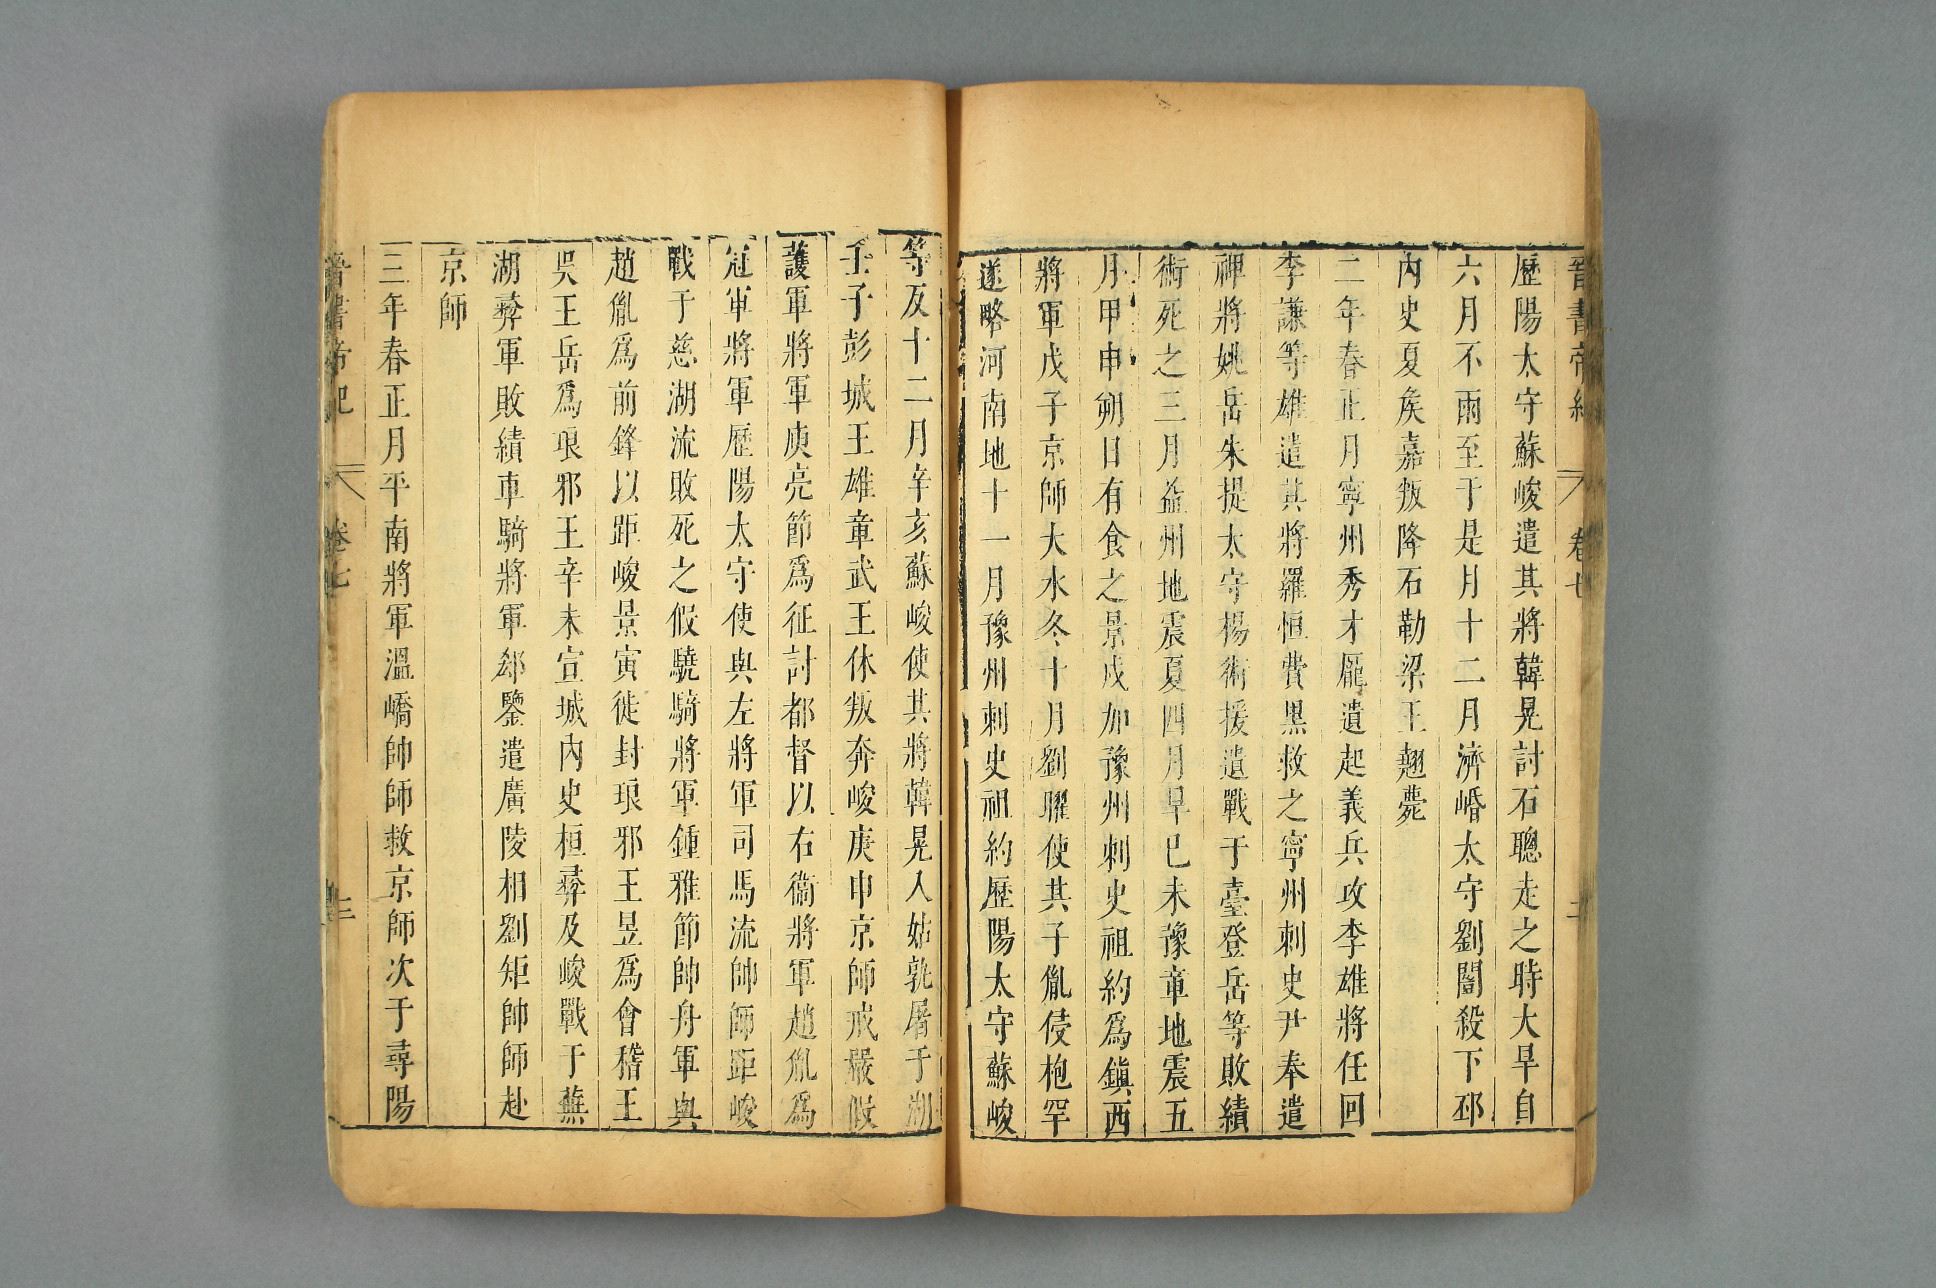 晉書帝紀 卷七 二
歷陽太守蘇峻遣其將韓晃討石聰走之時大旱自
六月不雨至于是月十二月濟㟭太守劉闓殺下邳
內史夏矦嘉叛降石勒梁王翹薨
二年春正月寧州秀才龐遺起義兵攻李雄將任回
李謙等雄遣其將羅恒費黑救之寧州刺史尹奉遣
裨將姚岳朱提太守楊術援遺戰于臺登岳等敗績
術死之三月益州地震夏四月旱已未豫章地震五
月甲申朔日有食之景戌加豫州刺史祖約爲鎭西
將軍戊子京師大水冬十月劉曜使其子胤侵枹罕
遂略河南地十一月豫州刺史祖約歷陽太守蘇峻
等反十二月辛亥蘇峻使其將韓晃入姑孰屠于湖
壬子彭城王雄章武王休叛奔峻庚申京師戒嚴假
護軍將軍庾亮節爲征討都督以右衞將軍趙胤爲
冠軍將軍歷陽太守使與左將軍司馬流帥師距峻
戰于慈湖流敗死之假驍騎將軍鍾雅節帥舟軍與
趙胤爲前鋒以距峻景寅徙封琅邪王昱爲會稽王
吳王岳爲琅邪王辛未宣城內史桓彝及峻戰于蕪
湖彝軍敗績車騎將軍郄鑒遣廣陵相劉矩帥師赴
京師
三年春正月平南將軍溫嶠帥師救京師次于尋陽
晉書帝紀 卷七 三